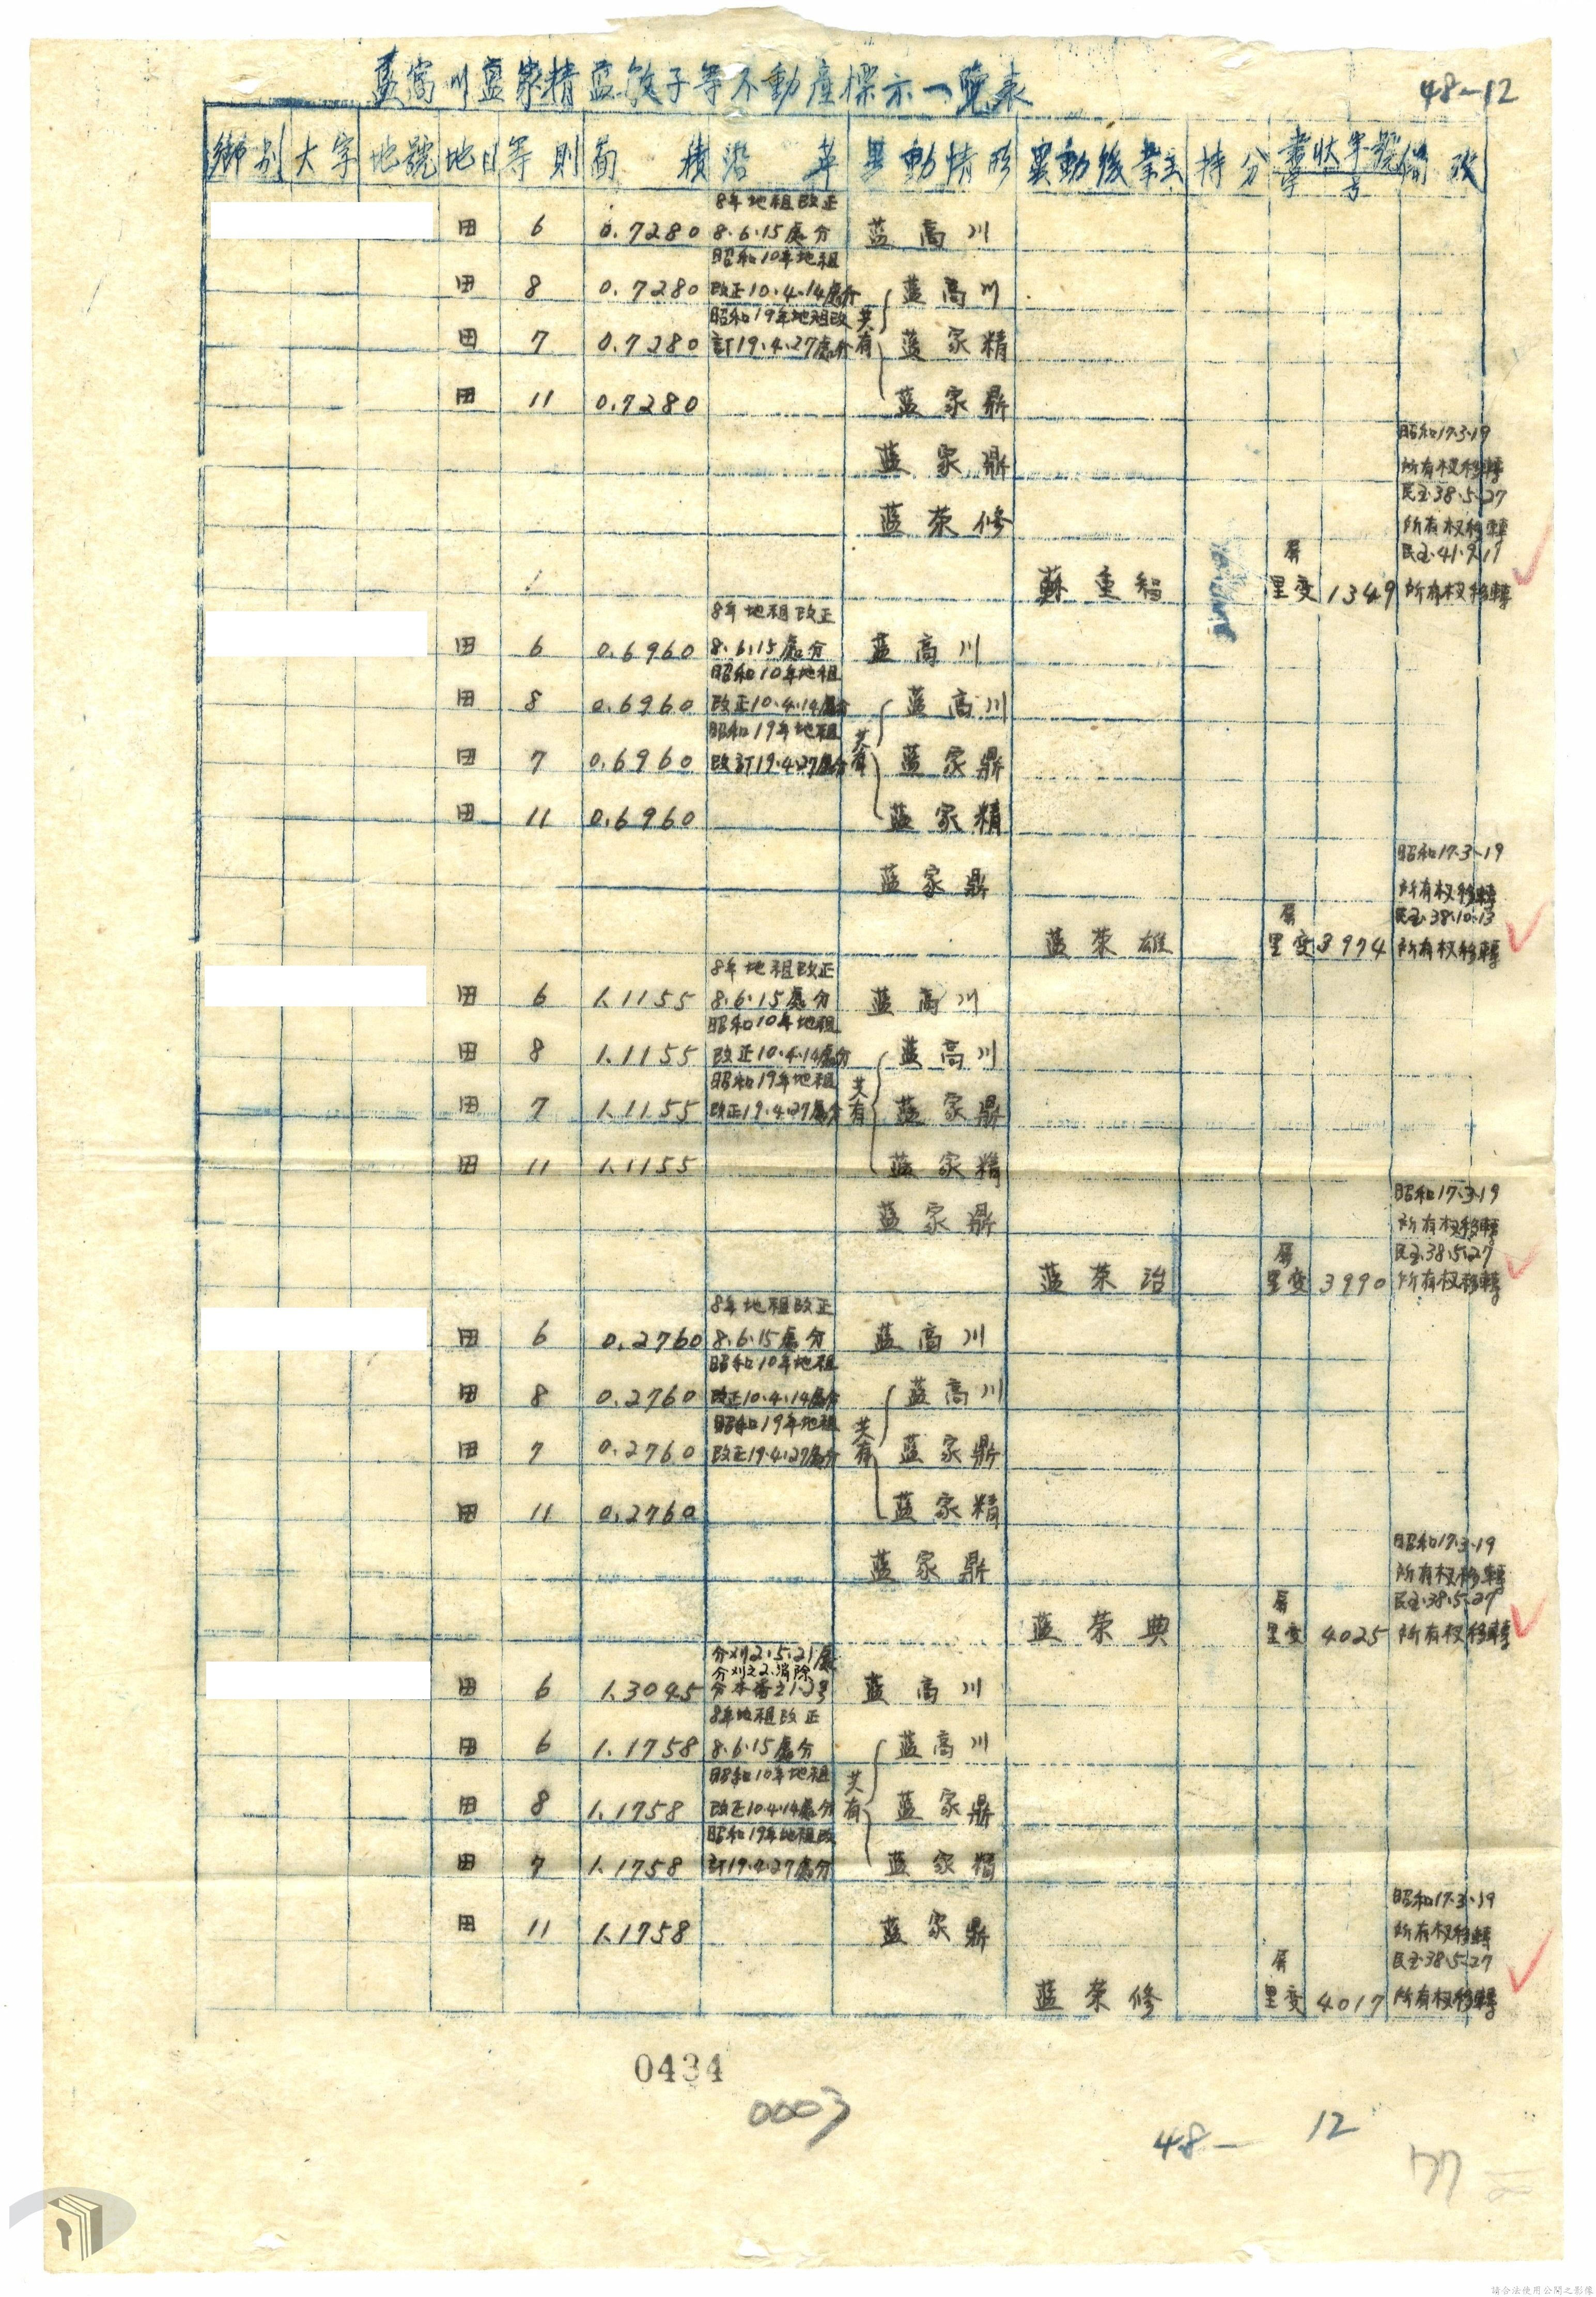 藍高川藍家精藍敏子等不動產標示一覽表
48-12
鄉別 大字 地號 地目 等則 面積 沿革 異動情形 異動後業主 持分 書狀字號 字 号 備攷
8年地租改正
田 6 0.7280 8.6.15處分 藍高川
昭和10年地租
田 8 0.7280 改正10.4.14處分 藍高川
昭和19年地租改 共有
田 7 0.7280 訂19.4.27處分 藍家精
田 11 0.7280 藍家鼎
昭和17.3.19
藍家鼎 所有权移轉
民国38.5.27
藍荣修 所有权移轉
屏 民国41.9.17
蘇重 里变 1349 所有权移轉
8年地租改正
田 6 0.6960 8.6.15處分 藍高川
昭和10年地租
田 8 0.6960 改正10.4.14處分 藍高川
昭和19年地租 共有
田 7 0.6960 改訂19.4.27處分 藍家鼎
田 11 0.6960 藍家精
昭和17.3.19
藍家鼎 所有权移轉
屏 民国38.10.13
藍荣雄 里变 3974 所有权移轉
8年地租改正
田 6 1.1155 8.6.15處分 藍高川
昭和10年地租
田 8 1.1155 改正10.4.14處分 藍高川
昭和19年地租 共有
田 7 1.1155 改正19.4.27處分 藍家鼎
田 11 1.1155 藍家精
昭和17.3.19
藍家鼎 所有权移轉
屏 民国38.5.27
藍荣治 里变 3990 所有权移轉
8年地租改正
田 6 0.2760 8.6.15處分 藍高川
昭和10年地租
田 8 0.2760 改正10.4.14處分 藍高川
昭和19年地租 共有
田 7 0.2760 改正19.4.27處分 藍家鼎
田 11 0.2760 藍家精
昭和17.3.19
藍家鼎 所有权移轉
屏 民国38.5.27
藍荣典 里变 4025 所有权移轉
分刈2.5.21處
分刈之2.消除
田 6 1.3045 分本番之1.2号 藍高川
8年地租改正
田 6 1.1758 8.6.15處分 藍高川
昭和10年地租 共有
田 8 1.1758 改正10.4.14處分 藍家鼎
昭和19年地租改
田 7 1.1758 訂19.4.27處分 藍家精
昭和17.3.19
田 11 1.1758 藍家鼎 所有权移轉
屏 民国38.5.27
藍荣修 里变 4017 所有权移轉
0434
0003
48- 12
77
請合法使用公開之影像